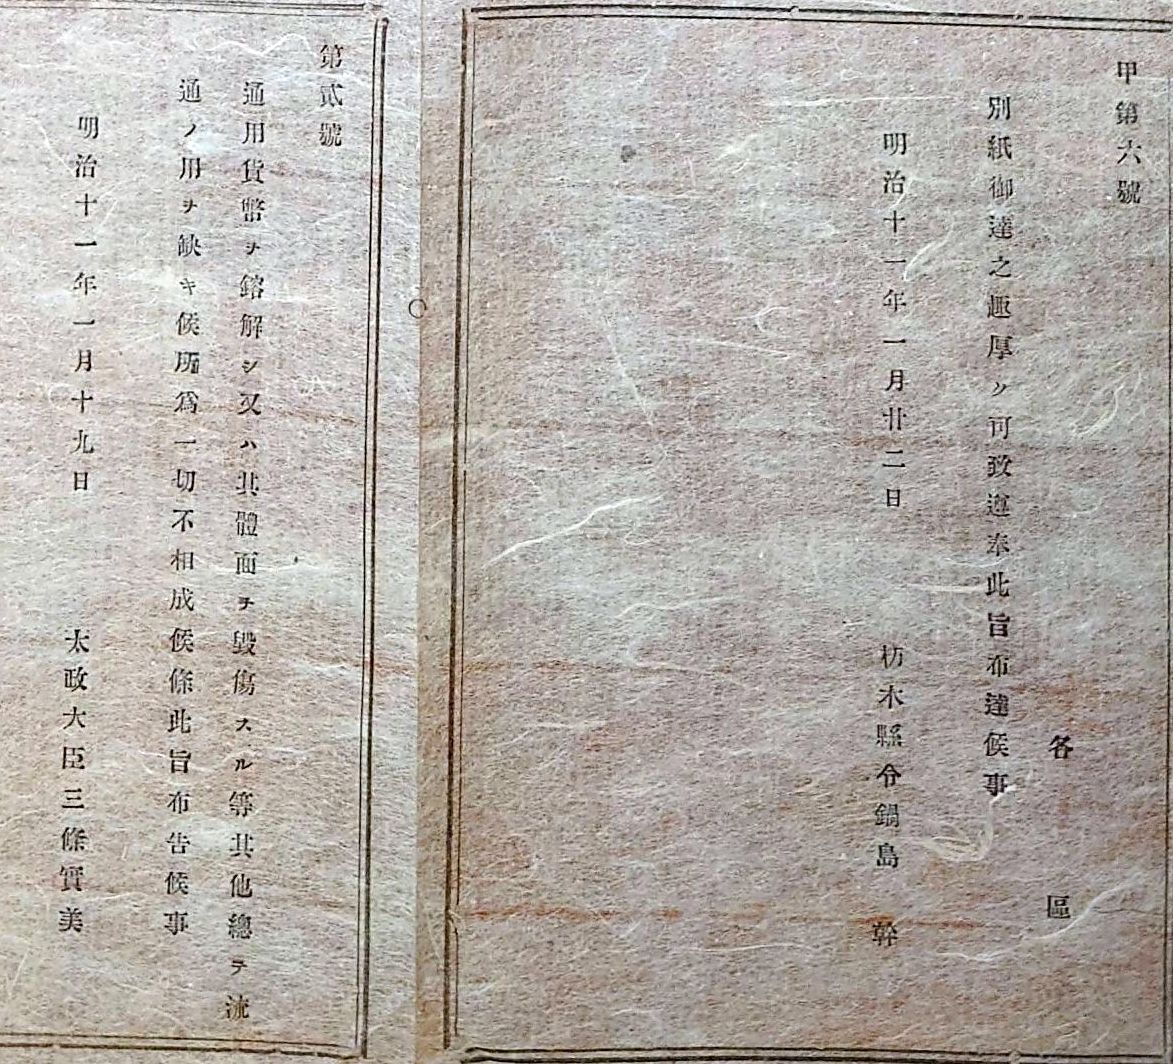 甲第六號
各區
別紙御達之趣厚ク可致遵奉此旨布達候事
明治十一年一月廿二日　栃木縣令鍋島幹
第貳號
通用貨幣ヲ鎔解シ又ハ其體面ヲ毀傷スル等其他總テ流
通ノ用ヲ缺キ候所爲一切不相成候條此旨布告候事
明治十一年一月十九日　太政大臣三條實美